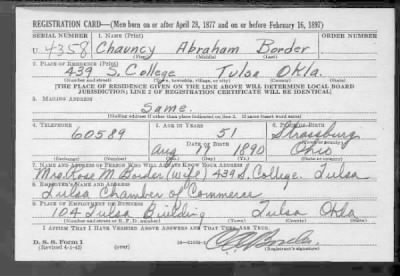 REGISTRATION CARD—(Men born on or after April 28, 1877 and on or before February 16, 1897)
SERIAL NUMBER 1. NAME (Print) ORDER NUMBER
U. 4358 Chauncy Abraham Border
(First) (Middle) (Last)
2. PLACE OF RESIDENCE (Print)
439 S. College Tulsa Okla.
(Number and street) (Town, township, village, or city) (County) (State)
[THE PLACE OF RESIDENCE GIVEN ON THE LINE ABOVE WILL DETERMINE LOCAL BOARD
JURISDICTION; LINE 2 OF REGISTRATION CERTIFICATE WILL BE IDENTICAL]
3. MAILING ADDRESS
Same.
[Mailing address if other than place indicated on line 2. If same insert word same]
4. TELEPHONE 5. AGE IN YEARS 6. PLACE OF BIRTH
60589 51 Strassburg
DATE OF BIRTH
Aug 17 1890 Ohio
7. NAME AND ADDRESS OF PERSON WHO WILL ALWAYS KNOW YOUR ADDRESS
Mrs. Rose M. Border (wife) 439 S. College. Tulsa
8. EMPLOYER'S NAME AND ADDRESS
Tulsa Chamber of Commerce
9. PLACE OF EMPLOYMENT OR BUSINESS
104 Tulsa Building Tulsa Okla
(Number and street or R. F. D. number) (Town) (County) (State)
I AFFIRM THAT I HAVE VERIFIED ABOVE ANSWERS AND THAT THEY ARE TRUE.
D. S. S. Form 1
(Revised 4-1-42) (over) Border
(Registrant's signature)